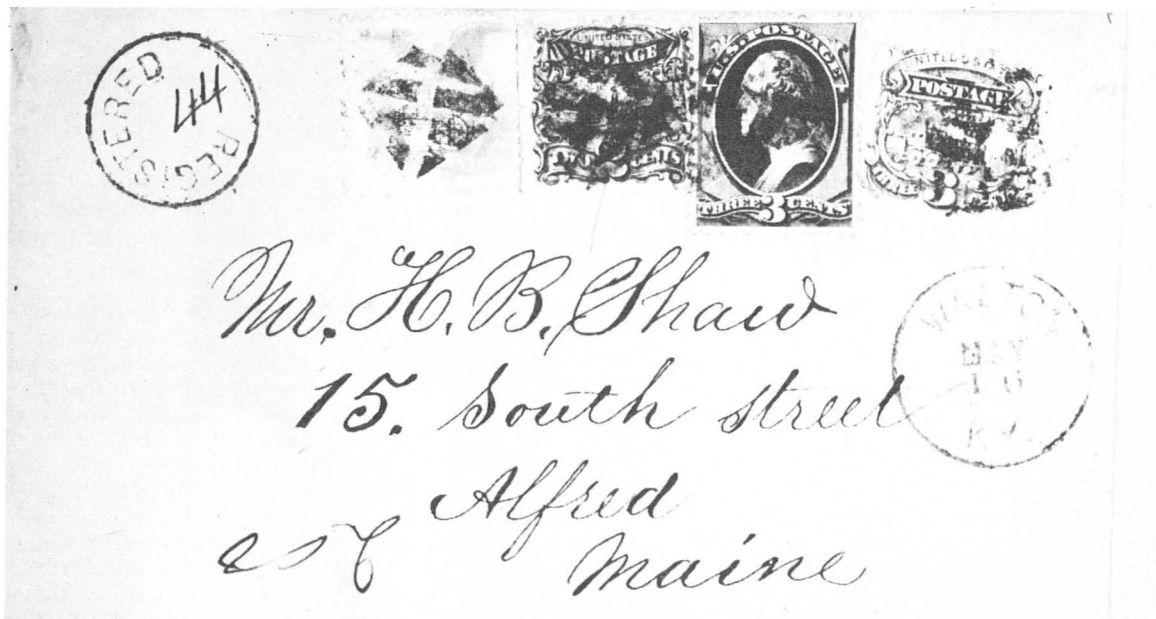 REGISTERED
44
UNITED STATES
POSTAGE
TWO CENTS
U.S. POSTAGE
THREE 3 CENTS
UNITED S
POSTAGE
THREE 3
Mr. H. B. Shaw
15. South street
Alfred
Maine
MAY
16
KY.